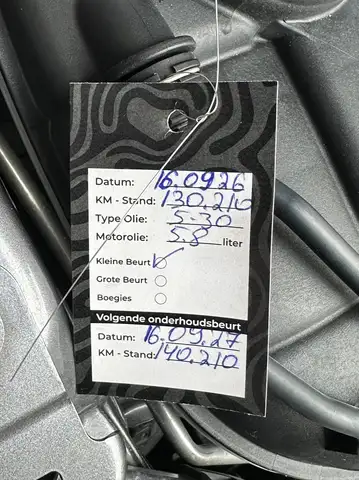 Datum: 16.0926
KM - Stand: 130.210
Type Olie: 5-30
Motorolie: 5.8 liter
Kleine Beurt
Grote Beurt
Boegies
Volgende onderhoudsbeurt
Datum: 16.09.27
KM - Stand: 140.210